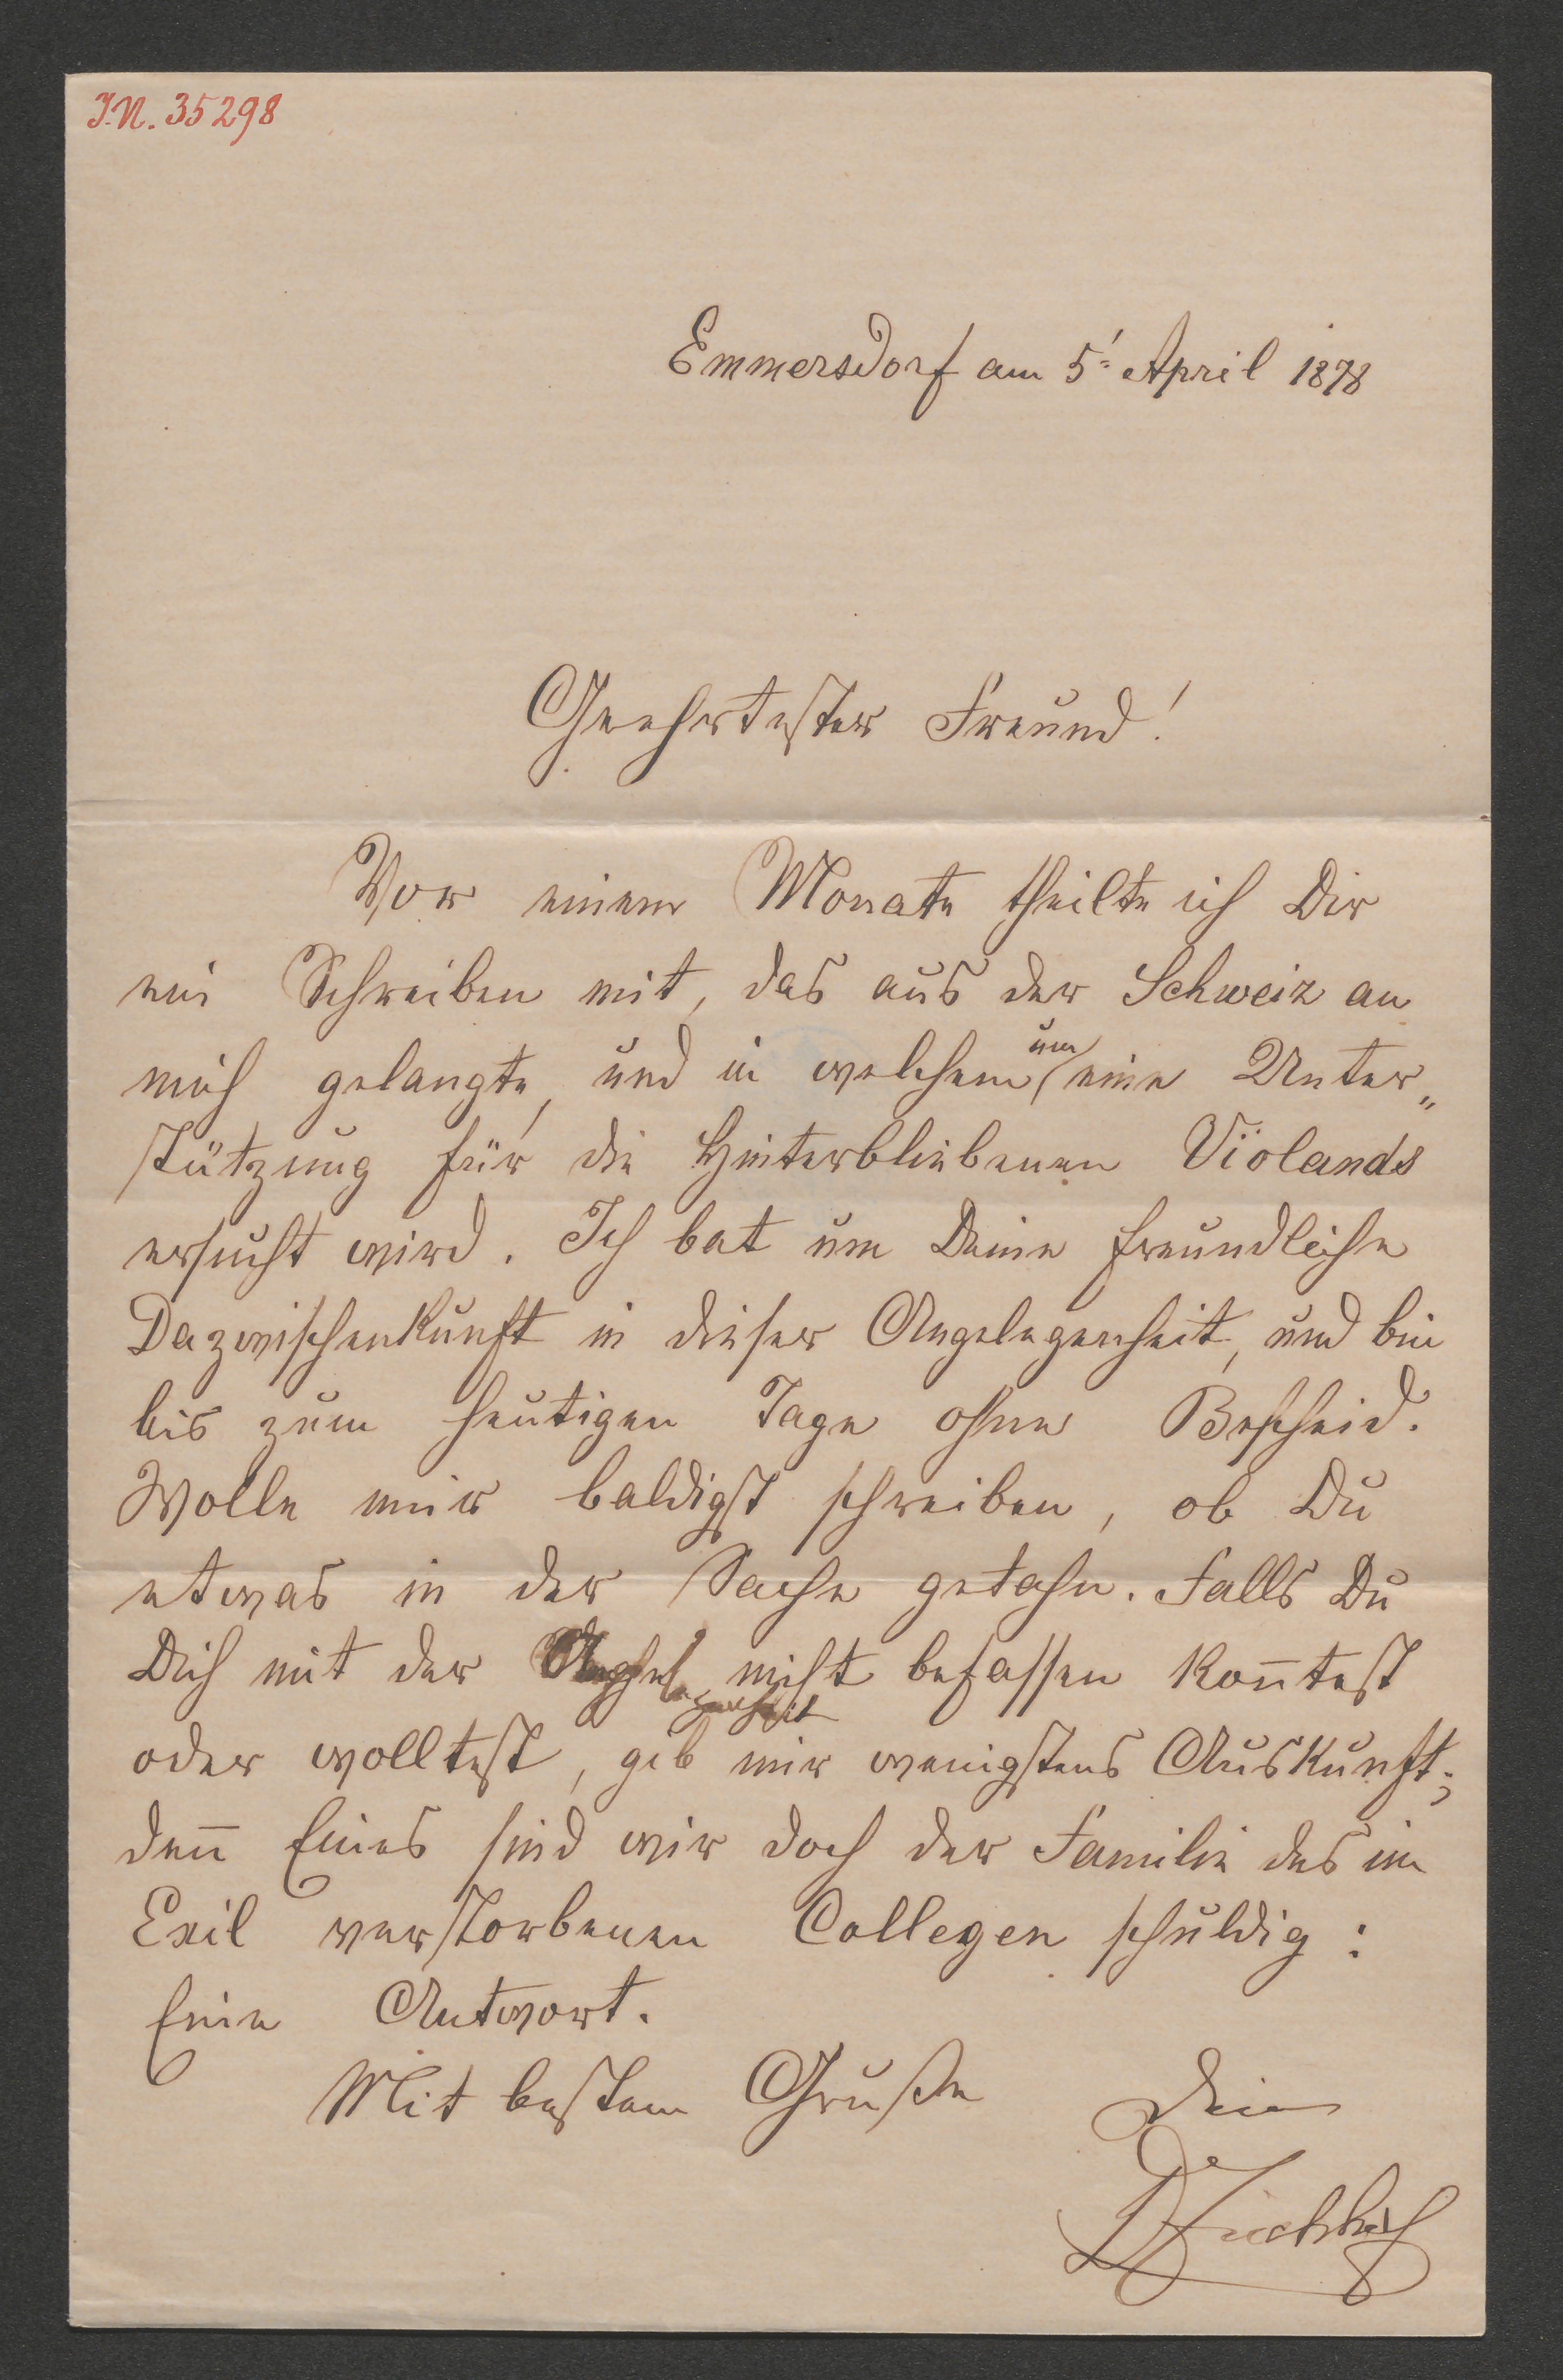 I.N. 35298
Emmersdorf am 5' April 1878
Geehrtester Freund!
Vor einem Monate theilte ich Dir
ein Schreiben mit, das aus der Schweiz an
mich gelangte, und in welchem um eine Unter„
stützung für die Hinterbliebenen Violands
ersucht wird. Ich bat um Deine freundliche
Dazwischenkunft in dieser Angelegenheit, und bin
bis zum heutigen Tage ohne Bescheid.
Wolle mir baldigst schreiben, ob Du
etwas in der Sache getahn. Falls Du
Dich mit der Angelegenheit nicht befassen kon̅test
oder wolltest, gib mir wenigstens Auskunft;
den̅ Eines sind wir doch der Familie des im
Exil verstorbenen Collegen schuldig:
Eine Antwort.
Mit bestem Gruße Dein